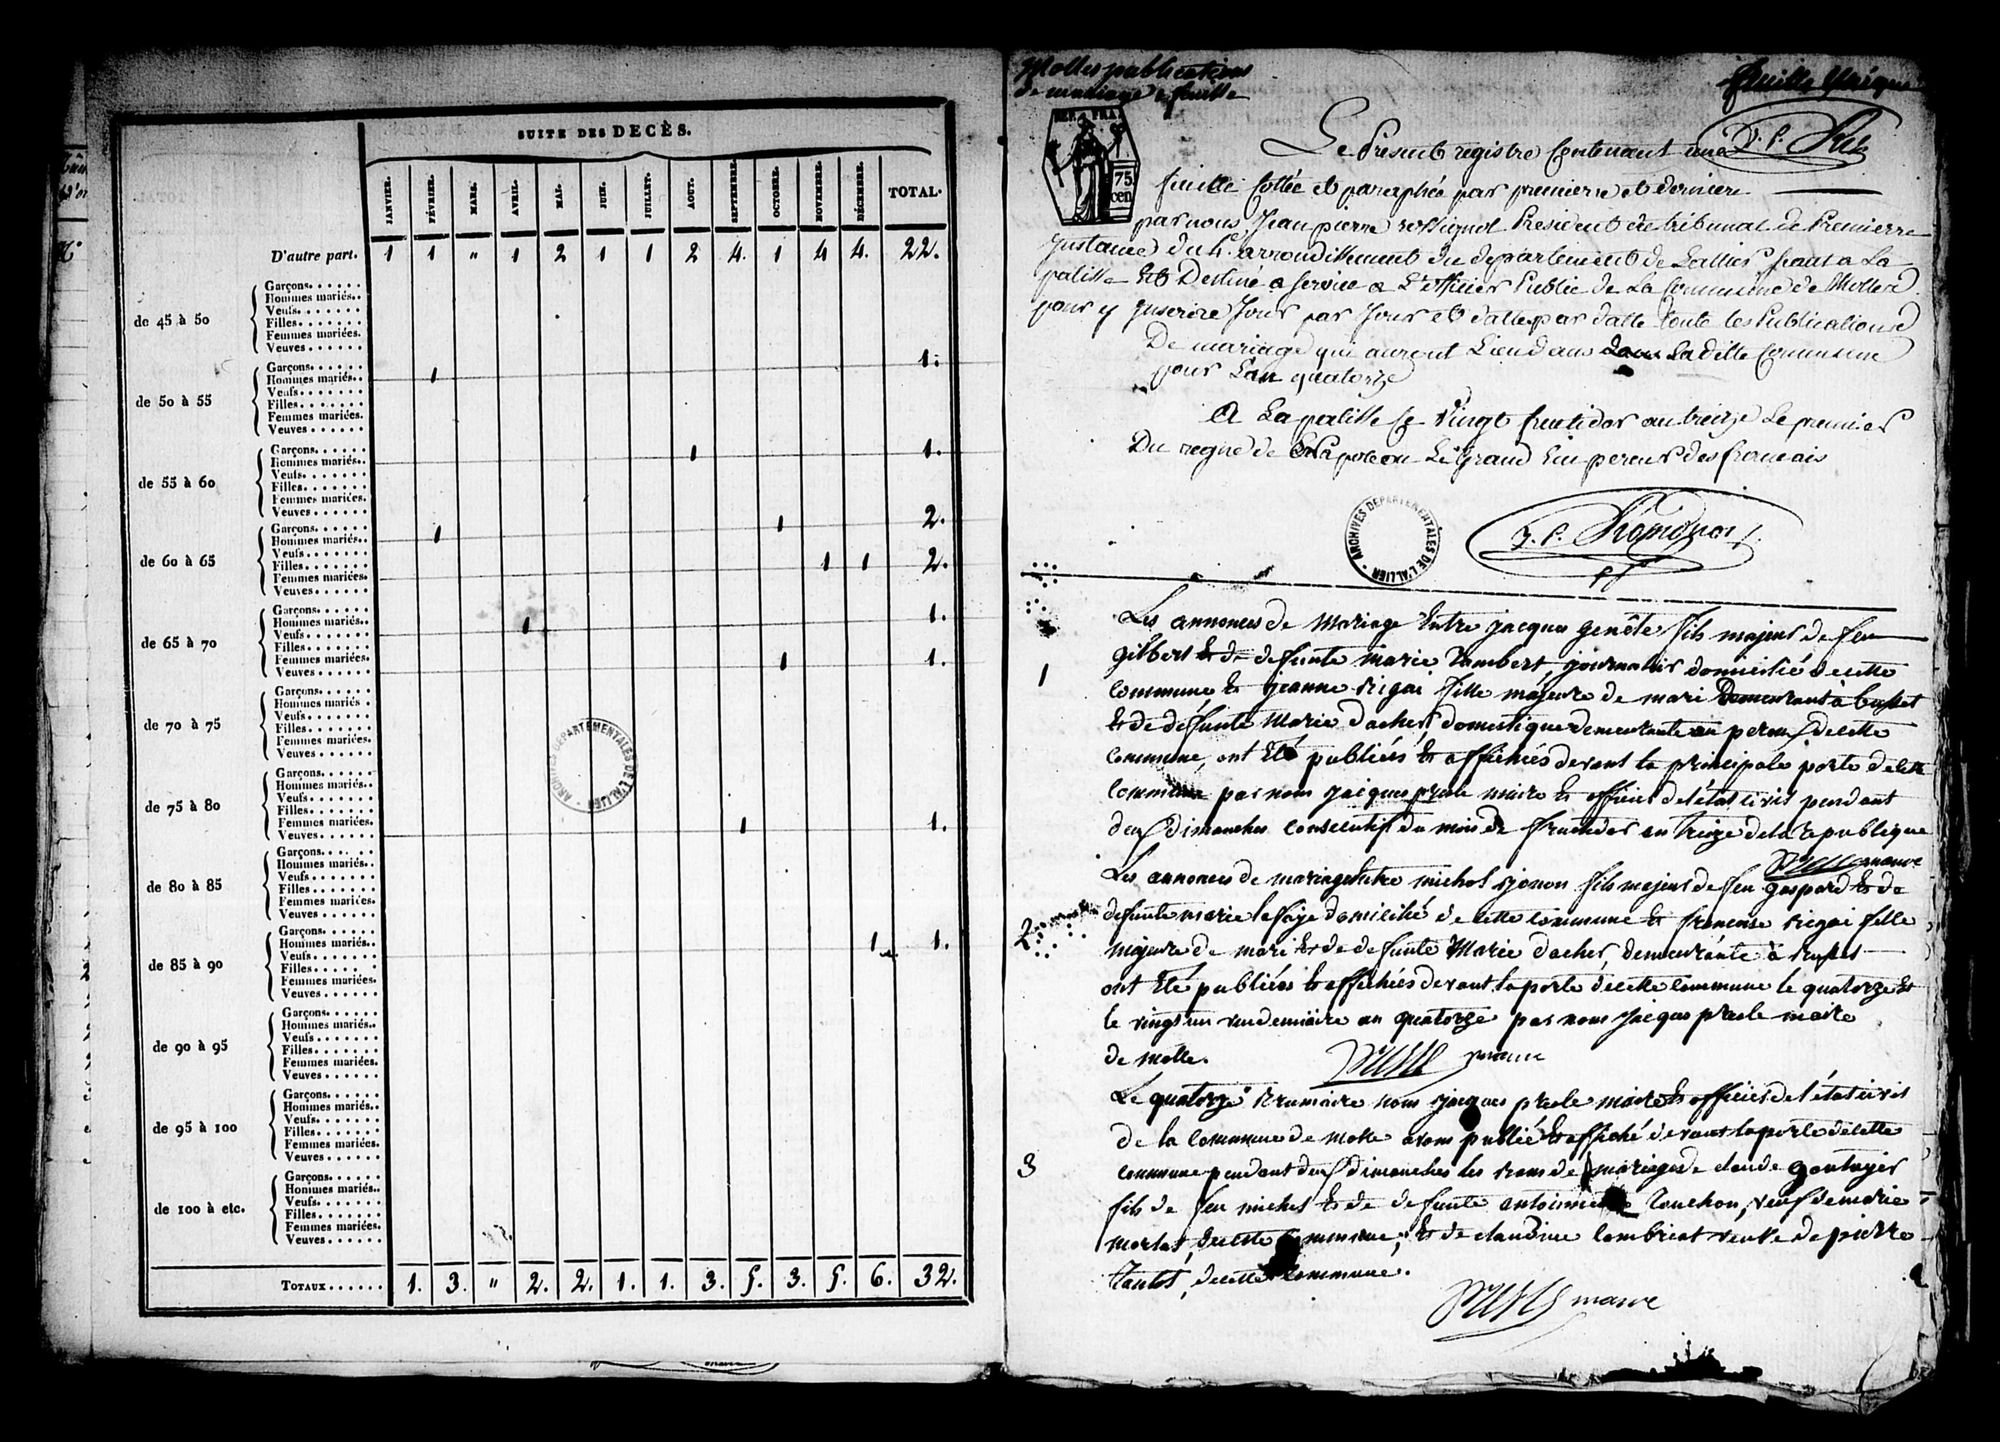 SUITE DES DECÈS.
JANVIER. FÉVRIER. MARS. AVRIL. MAI. JUIN. JUILLET. AOUT. SEPTEMBRE. OCTOBRE. NOVEMBRE. DÉCEMBRE. TOTAL.
D'autre part. 1 1 " 1 2 1 1 2 4. 1 4 4. 22.
de 45 à 50
Garçons......
Hommes mariés..
Veufs.......
Filles.......
Femmes mariées.
Veuves......
de 50 à 55
Garçons......
Hommes mariés.. 1 1.
Veufs.......
Filles.......
Femmes mariées.
Veuves......
de 55 à 60
Garçons......
Hommes mariés.. 1 1.
Veufs.......
Filles.......
Femmes mariées.
Veuves......
de 60 à 65
Garçons......
Hommes mariés.. 1 1 2.
Veufs.......
Filles....... 1 1 2.
Femmes mariées.
Veuves......
de 65 à 70
Garçons......
Hommes mariés.. 1 1.
Veufs.......
Filles.......
Femmes mariées. 1 1.
Veuves......
de 70 à 75
Garçons......
Hommes mariés .
Veufs.......
Filles.......
Femmes mariées.
Veuves......
de 75 à 80
Garçons......
Hommes mariés..
Veufs.......
Filles.......
Femmes mariées.
Veuves...... 1 1.
de 80 à 85
Garçons......
Hommes mariés..
Veufs.......
Filles.......
Femmes mariées
Veuves......
de 85 à 90
Garçons......
Hommes mariés.. 1 1.
Veufs.......
Filles.......
Femmes mariées.
Veuves......
de 90 à 95
Garçons......
Hommes mariés..
Veufs.......
Filles.......
Femmes mariées.
Veuves......
de 95 à 100
Garçons......
Hommes mariés..
Veufs.......
Filles.......
Femmes mariées.
Veuves......
de 100 à etc.
Garçons......
Hommes mariés..
Veufs.......
Filles.......
Femmes mariées.
Veuves......
TOTAUX...... 1. 3. " 2. 2. 1. 1. 3. 5. 3. 5. 6. 32.
ARCHIVES DEPARTEMENTALES DE L'ALLIER
Molles publications
de mariage 1 feuille
feuille Unique
REP. FRA.
75 cen.
Le Present registre Contenant une
feuille Cottée et paraphée par premiere et derniere
par nous Jean pierre rossignol President du tribunal de Premiere
Instance du 4e arrondissement du departement de Lallier seant a La
palisse Est Destiné a Servire a L'officier Public de La Commune de Molles
pour y Inscrire Jour par Jour et datte par datte toute les Publications
De mariage qui auront Lieu dans La ditte Commune
pour L'an quatorze
A La palisse le Vingt fructidor an treize Le premier
Du regne de Napoleon Le Grand Empereur des francais
ARCHIVES DEPARTEMENTALES DE L'ALLIER
1
Les annonces de Mariage Entre jacques genête fils majeur de feu
gilbert Et de defunte marie Lambert, journalier domicilié de cette
commune Et jeanne rigai fille majeure de mari Demeurant à busset
Et de defunte Marie dacher, domestique demeurante au perou de cette
commune, ont Eté publiées Et affichées devant la principale porte de cette
commune par nous jacques presle maire Et officier de létat civil pendant
deux dimanches consecutif du mois de fructidor an treize de la republique
maire
2
Les annonces de mariage Entre michel fils majeur de feu gaspard Et de
defunte marie lafaye domicilié de cette commune Et francoise rigai fille
majeure de mari Et de defunte Marie dacher, demeurante à
ont Eté publiées Et affichées devant la porte de cette commune le quatorze Et
le vingt un vendemiaire an quatorze par nous jacques presle maire
de molle. presle maire
3
Le quatorze Brumaire nous jacques presle maire Et officier de l'état civil
de la commune de molle avons publié Et affiché devant la porte de cette
commune pendant deux dimanches les bans de mariages de claude gontayer
fils de feu michel Et de defunte antoinette Touchon, veuf de marie
morlat, de cette commune, Et de claudine lombriat veuve de pierre
, de cette commune.
presle maire